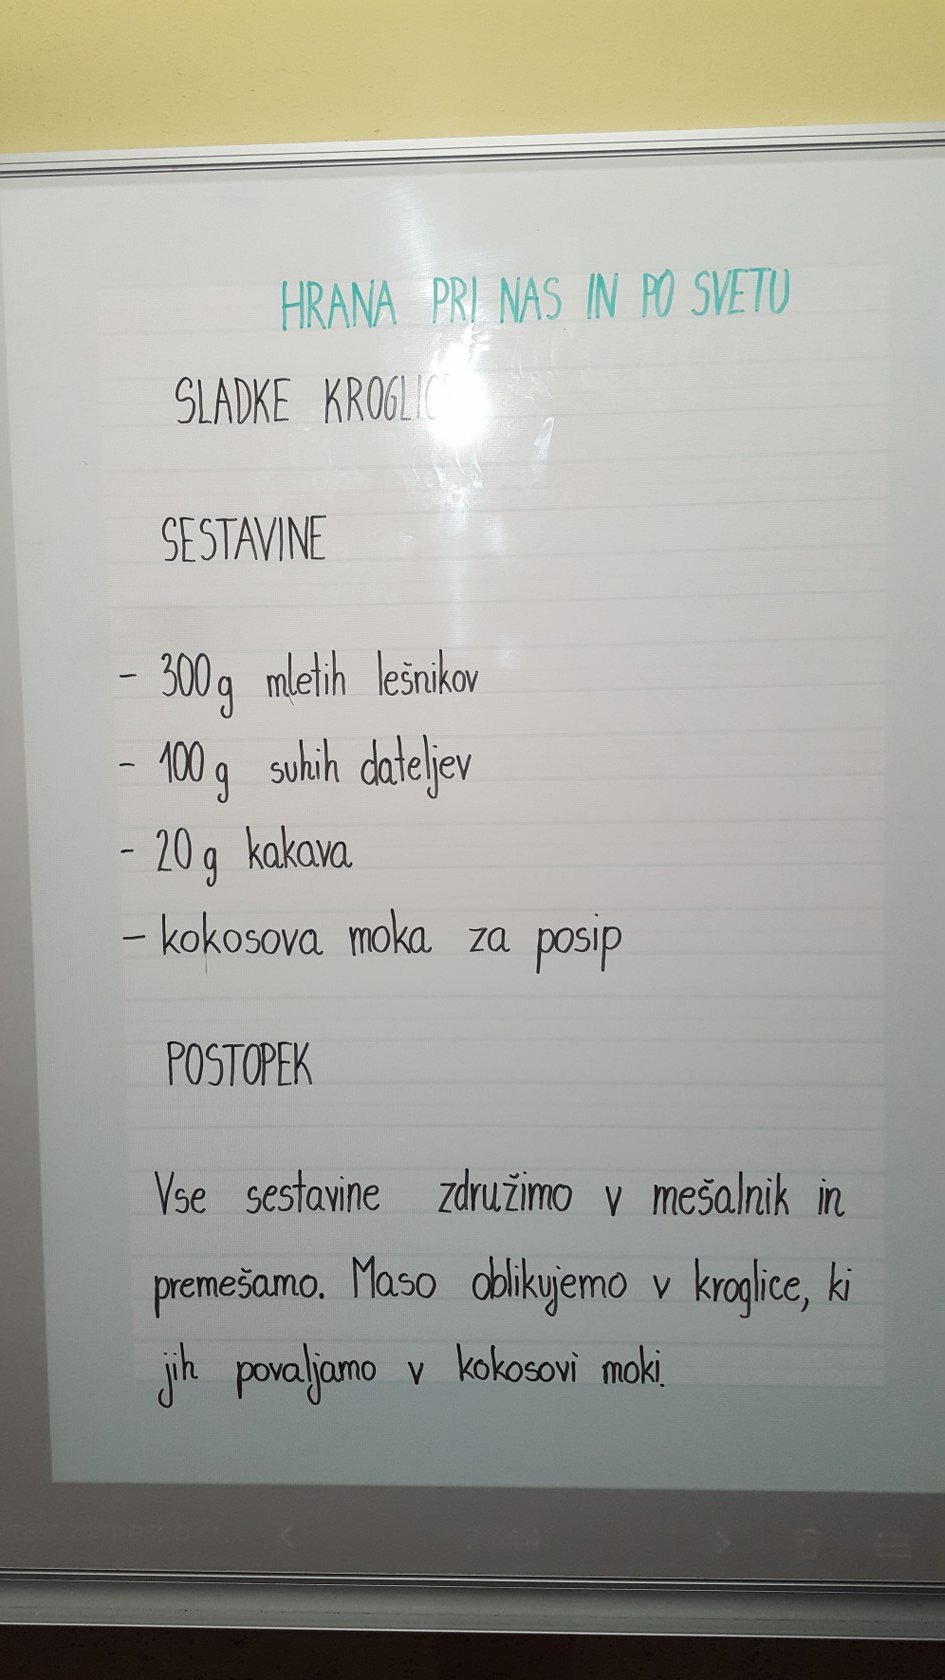 HRANA PRI NAS IN PO SVETU
SLADKE
SESTAVINE
- 300g mletih lešnikov
- 100g suhih dateljev
- 20g kakava
- kokosova moka za posip
POSTOPEK
Vse sestavine združimo v mešalnik in
premešamo. Maso oblikujemo v kroglice, ki
jih povaljamo v kokosovi moki.